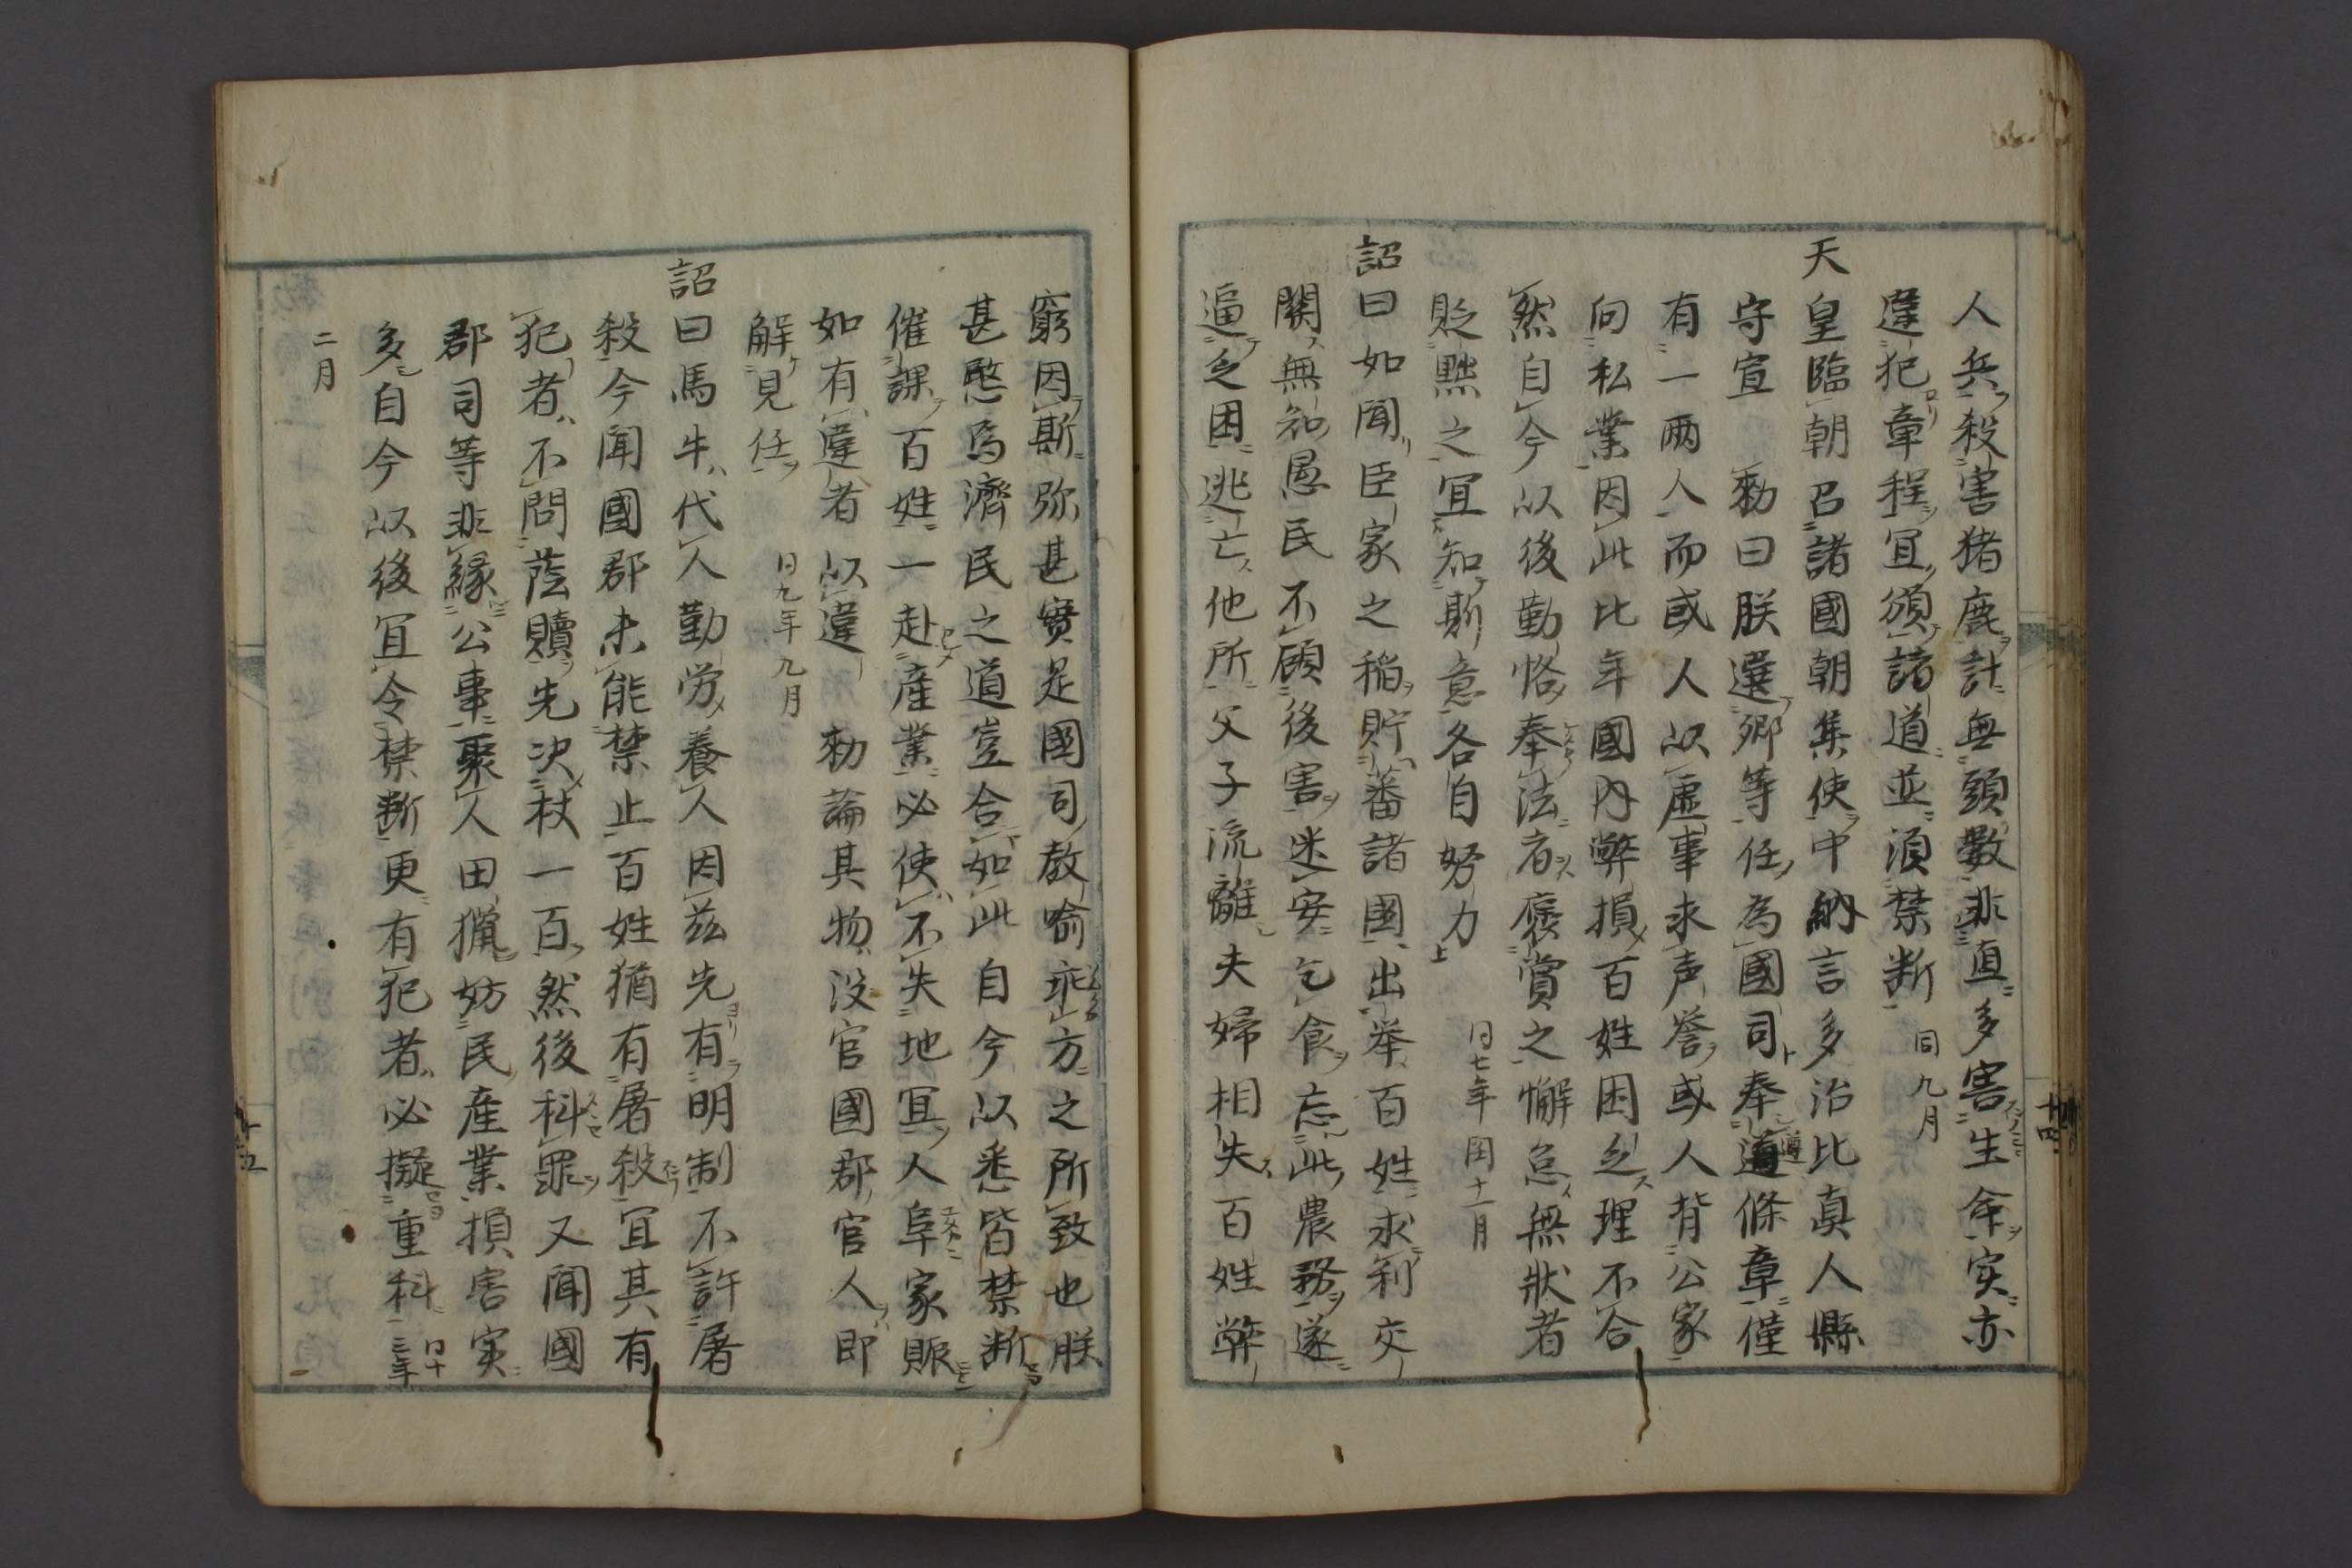 人兵殺害猪鹿計無頭數非直多害生命実亦
違犯章程冝頒諸道並湏禁断 同九月
天皇臨朝召諸國朝集使中納言多治比真人縣
守宣 勅曰朕選卿等任為國司奉遵條章僅
有一兩人而或人以虚事求声誉或人背公家
向私業因此比年國内弊損百姓困乏理不合
然自今以後勤恪奉法者褒賞之懈怠無狀者
貶黜之冝知斯意各自努力上 同七年閏十一月
詔曰如聞臣家之稲貯蓄諸國出挙百姓求利交
関無知愚民不顧後害迷安乞食忘此農務遂
逼乏困逃亡他所父子流離夫婦相失百姓弊
窮因斯弥甚實是國司教喩乖方之所致也朕
甚愍焉濟民之道豈合如此自今以悉皆禁断
催課百姓一赴産業必使不失地冝人阜家賑
如有違者以違 勅論其物没官國郡官人即
解見任 同九年九月
詔曰馬牛代人勤労養人因茲先有明制不許屠
殺今聞國郡未能禁止百姓猶有屠殺冝其有
犯者不問蔭贖先决杖一百然後科罪又聞國
郡司等非縁公事聚人田猟妨民産業損害実
多自今以後冝令禁断更有犯者必擬重科 同十三年
二月
十四
十五